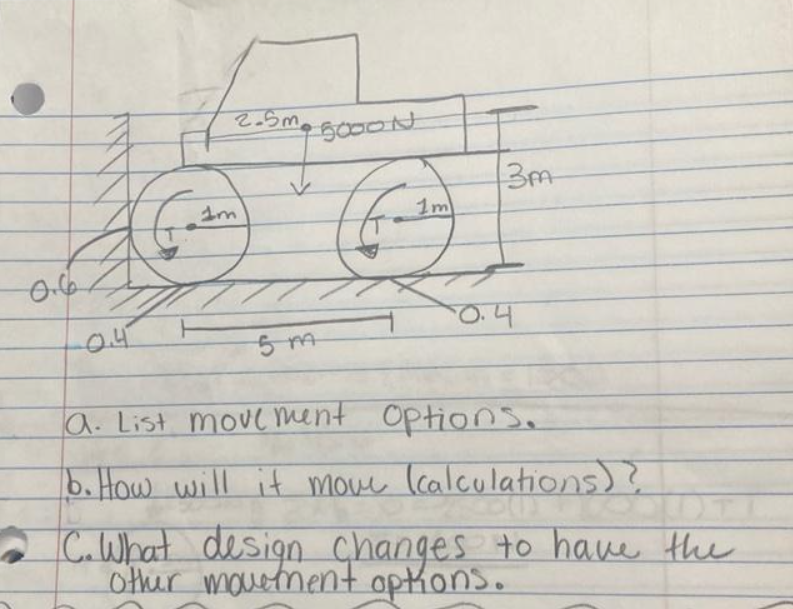 2.5m 5000N
3m
T 1m T 1m
0.6
0.4 5 m 0.4
a. List movement options.
b. How will it move (calculations)?
C. What design changes to have the
other movement options.